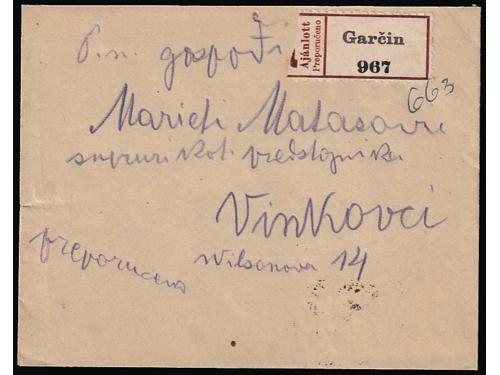 P. n. gospođi
Ajánlott
Preporučeno
Garčin
967
663
Marieti Matasović
supruzi kot. predstojnika
Vinkovci
preporučeno
Wilsonova 14